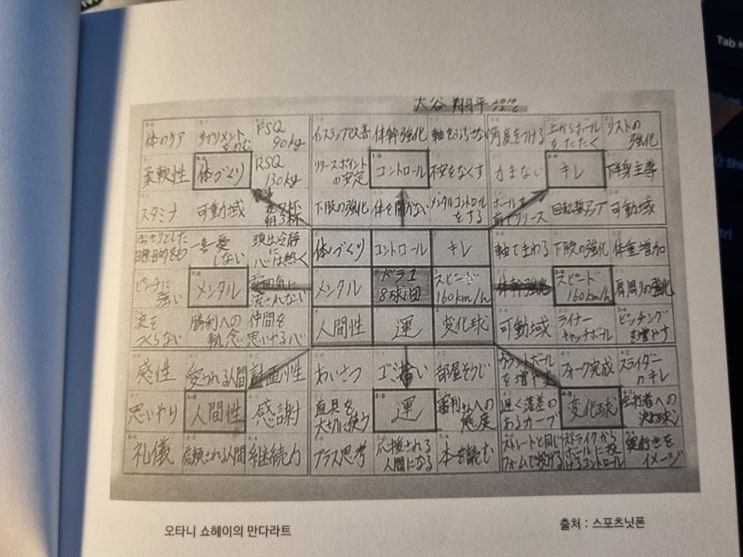 大谷 翔平
体のケア
サプリメント
をのむ
FSQ
90kg
インステップ改善
体幹強化
軸をぶらさない
角度をつける
上からボール
をたたく
リストの
強化
柔軟性
体づくり
RSQ
130kg
リリースポイント
の安定
コントロール
不安をなくす
力まない
キレ
下半身主導
スタミナ
可動域
食事
夜7杯
朝3杯
下肢の強化
体を開かない
メンタルコントロール
をする
ボールを
前でリリース
回転数アップ
可動域
はっきりとした
目標、目的をもつ
一喜一憂
しない
頭は冷静に
心は熱く
体づくり
コントロール
キレ
軸でまわる
下肢の強化
体重増加
ピンチに
強い
メンタル
雰囲気に
流されない
メンタル
ドラ1
8球団
スピード
160km/h
体幹強化
スピード
160km/h
肩周りの強化
波を
つくらない
勝利への
執念
仲間を
思いやる心
人間性
運
変化球
可動域
ライナー
キャッチボール
ピッチング
を増やす
感性
愛される人間
計画性
あいさつ
ゴミ拾い
部屋そうじ
カウントボール
を増やす
フォーク完成
スライダー
のキレ
思いやり
人間性
感謝
道具を
大切に使う
運
審判さんへの
態度
遅く落差の
あるカーブ
変化球
左打者への
決め球
礼儀
信頼される人間
継続力
プラス思考
応援される
人間になる
本を読む
ストレートと同じ
フォームで投げる
ストライクから
ボールに投
げるコントロール
奥行きを
イメージ
오타니 쇼헤이의 만다라트
출처 : 스포츠닛폰